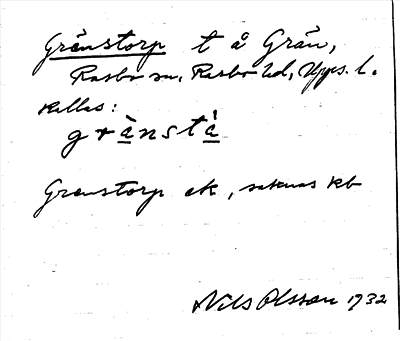 Gränstorp t å Grän,
Rasbo sn. Rasbo hd, Upps. l.
kallas:
gränstà
Grenstorp ek, saknas kb
Nils Olsson 1932